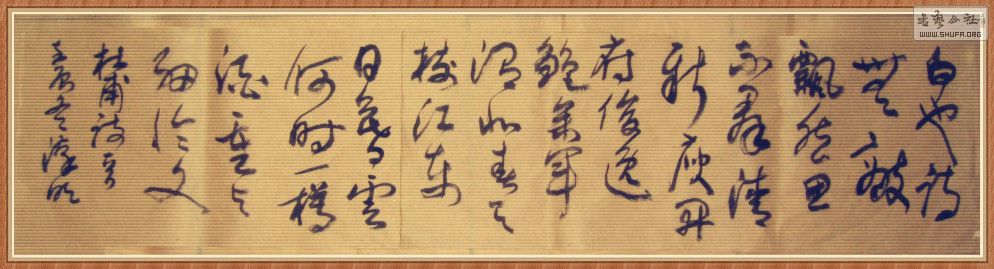 白也诗
無敵
飄然思
不群清
新庾开
府俊逸
鲍参军
渭北春天
树江东
日暮雲
何时一樽
酒重与
细论文
杜甫诗
书艺公社
WWW.SHUFA.ORG